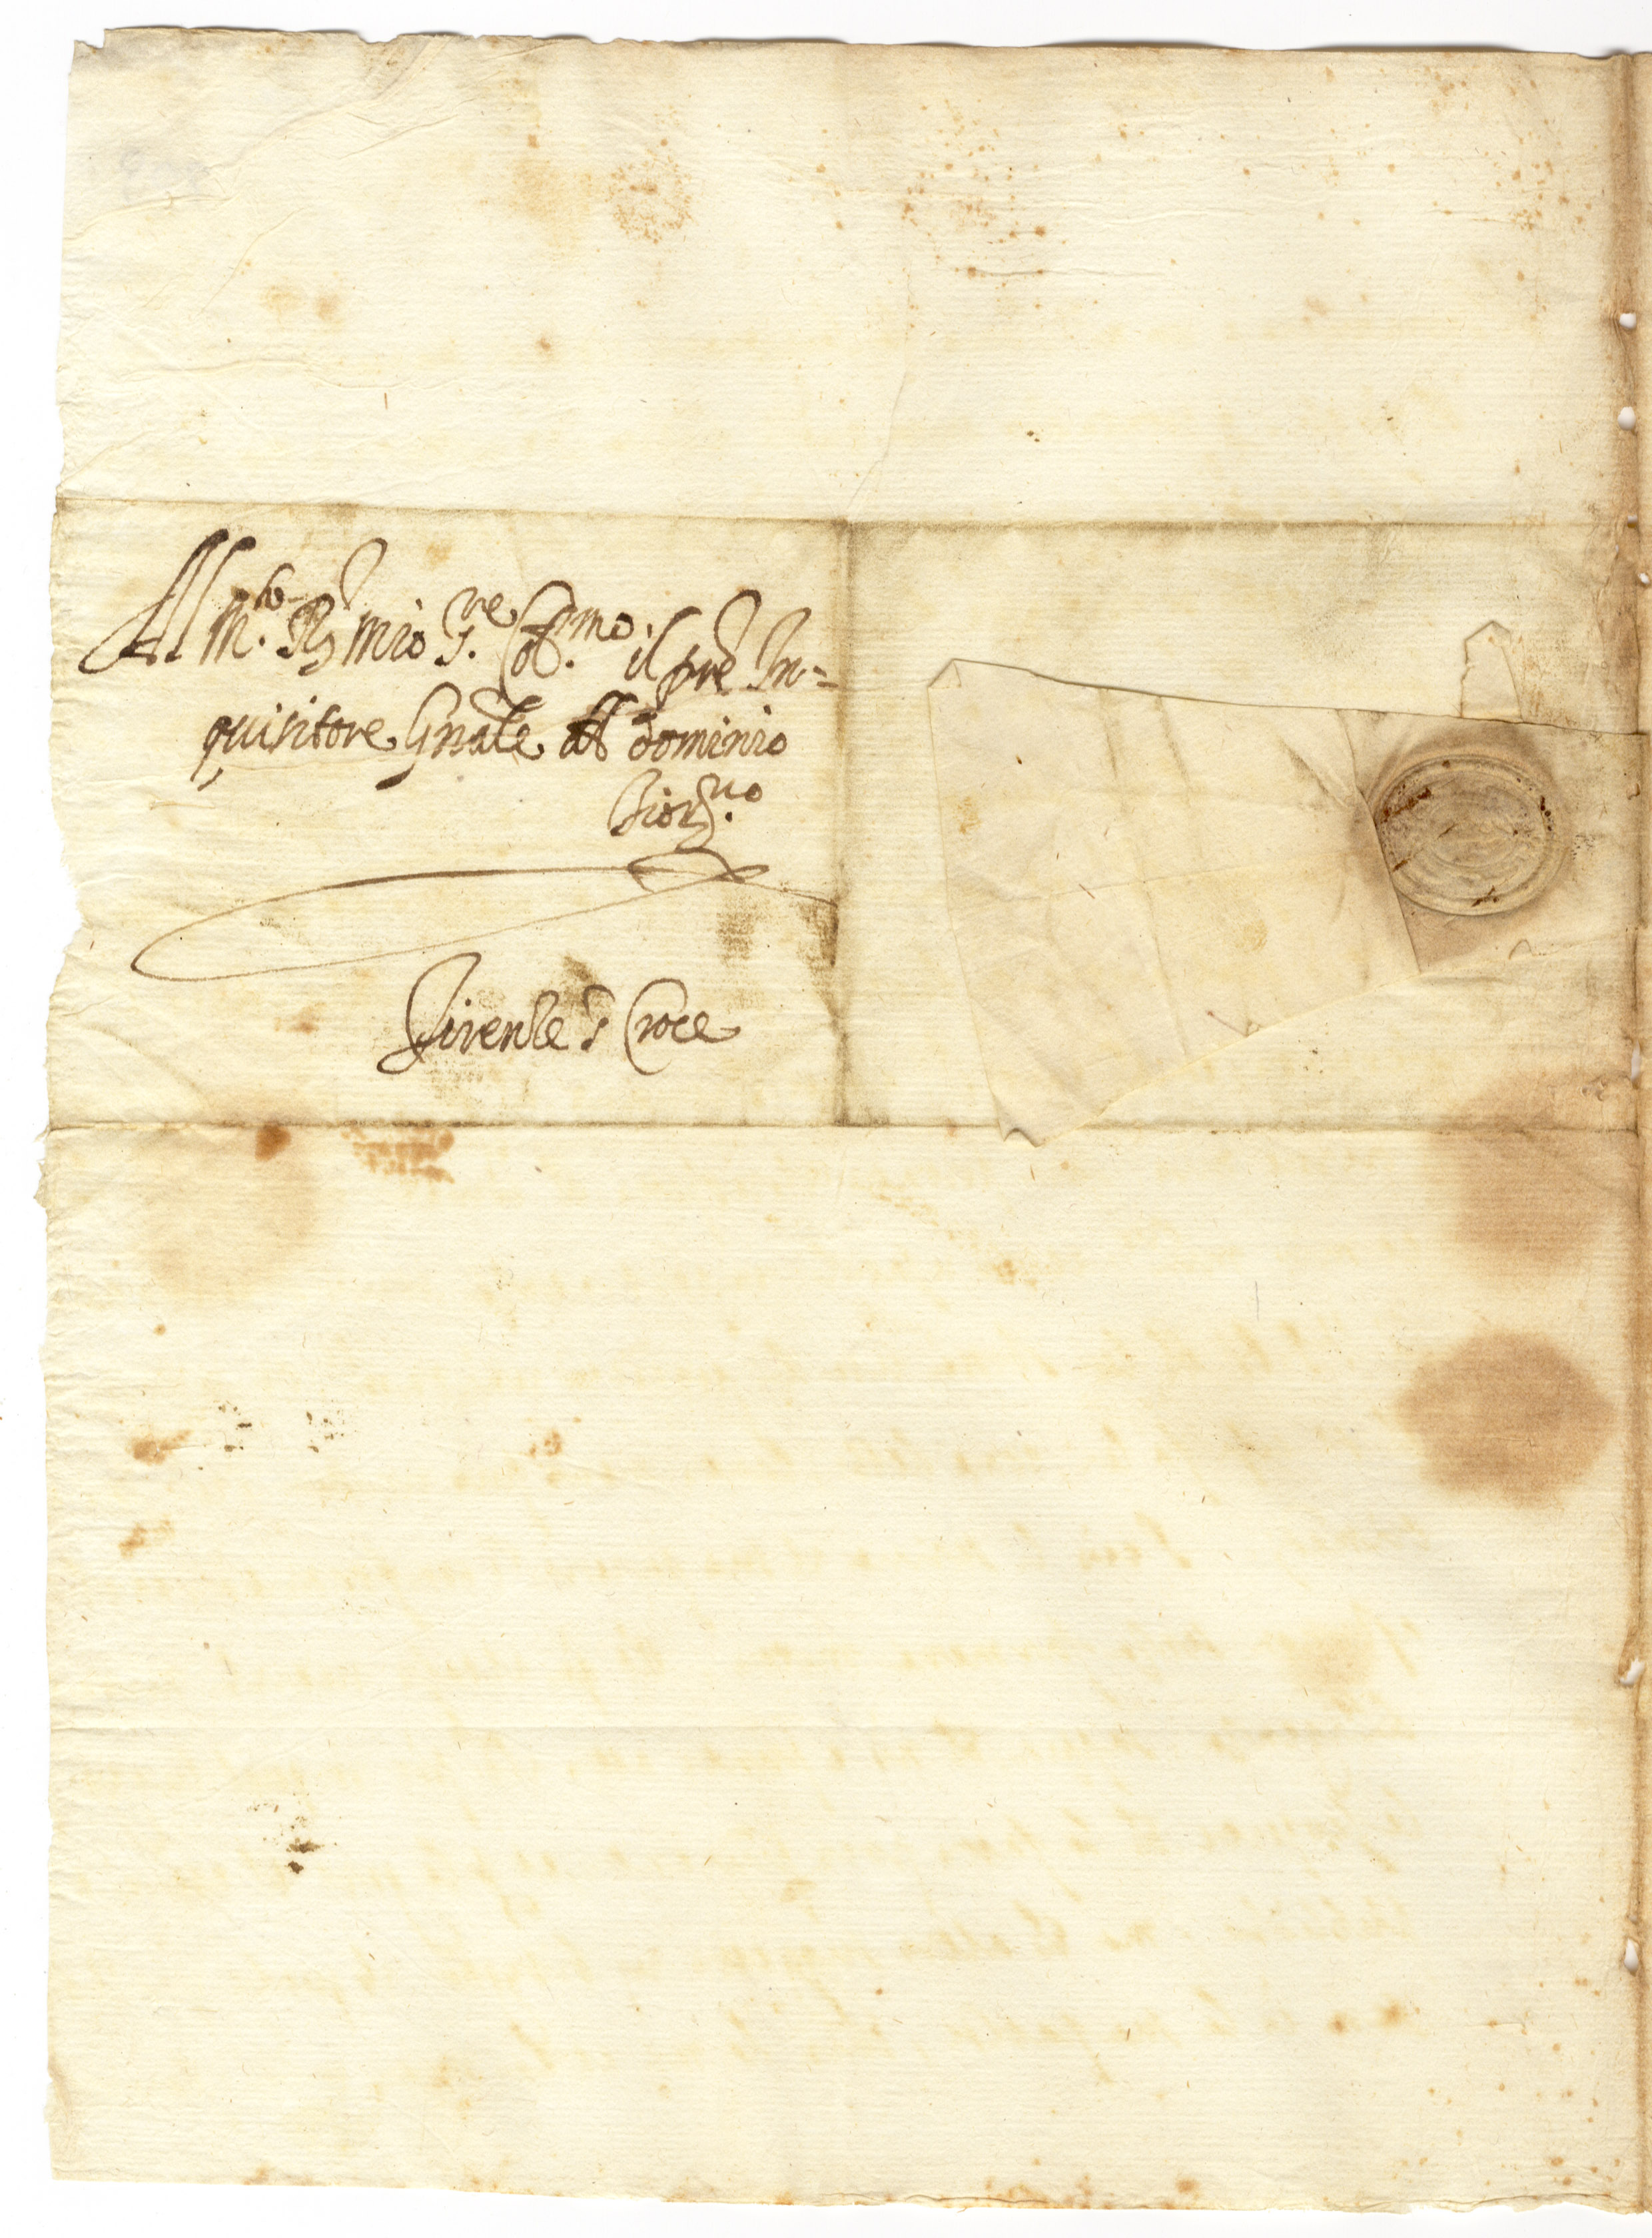 Al M.to R. mio S.re Col.mo il pre In=
quisitore Gnãle del dominio
Fior.no
Firenze S Croce